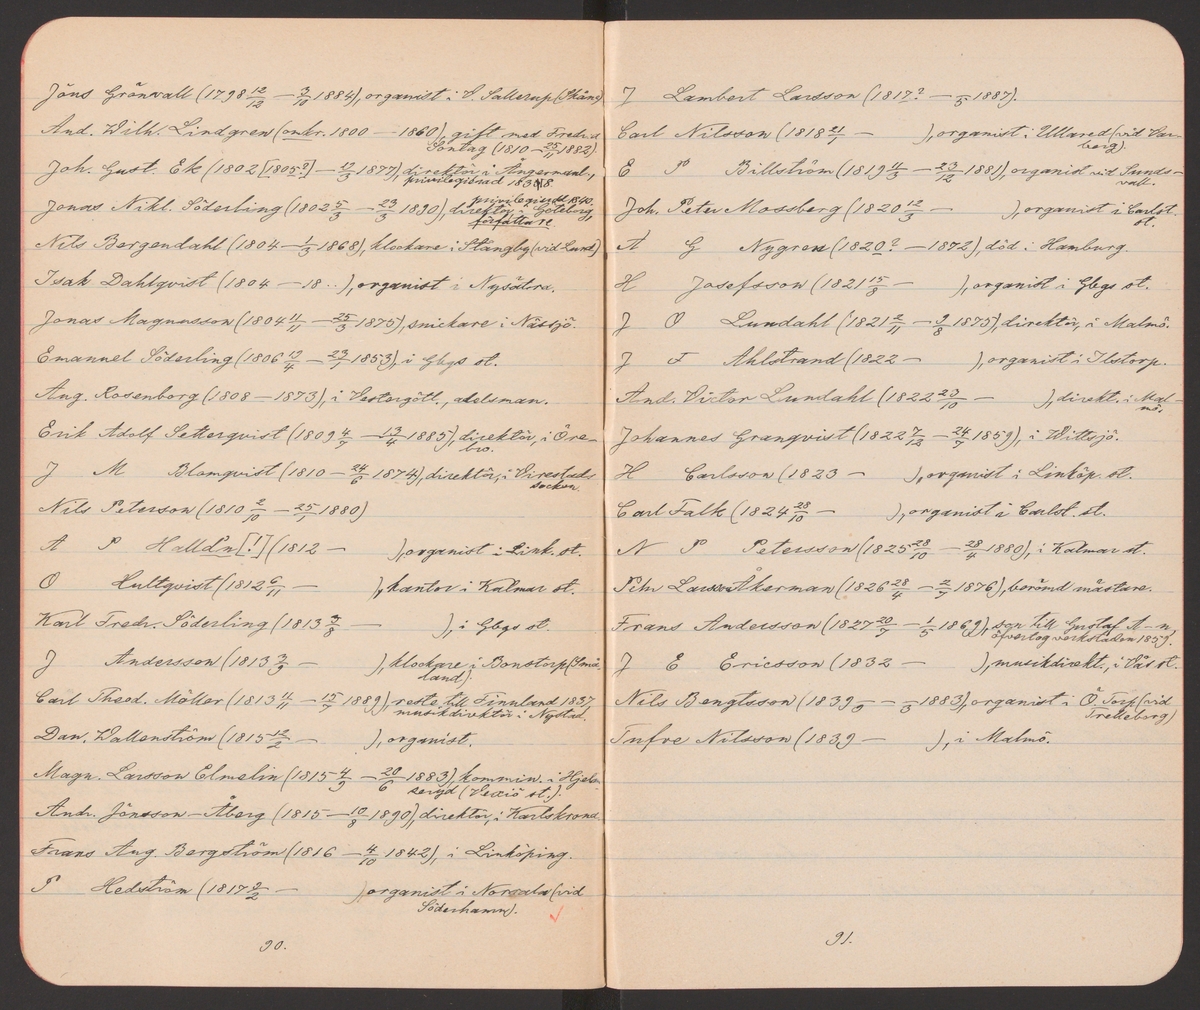 Jöns Grönvall (1798 12/12 — 3/10 1884), organist i V. Sallerup (Skåne)
And. Wilh. Lindgren (omkr. 1800 — 1860), gift med Fredr.a
Sontag (1810 — 25/11 1882).
Joh. Gust. Ek (1802 [1805?] — 12/3 1877), direktör i Ångermanl.,
privilegierad 1838.
privilegierad 1840.
Jonas Nikl. Söderling (1802 5/3 — 23/3 1890), direktör i Göteborg,
författare.
Nils Bergendahl (1804 — 1/3 1868), klockare i Stångby (vid Lund)
Isak Dahlqvist (1804 — 18..), organist i Nysätra.
Jonas Magnusson (1804 4/11 — 25/3 1875), snickare i Nässjö.
Emanuel Söderling (1806 19/4 — 23/7 1853), i Gbgs st.
Aug. Rosenborg (1808 — 1873), i Vestergötl., adelsman.
Erik Adolf Setterqvist (1809 4/7 — 13/4 1885), direktör, i Öre-
bro.
J M Blomqvist (1810 — 24/6 1874), direktör, i Virestads
socken.
Nils Peterson (1810 2/10 — 25/1 1880)
A P Halld'n [!] (1812 — ), organist i Link. st.
O Hultqvist (1812 6/11 — ), kantor i Kalmar st.
Karl Fredr. Söderling (1813 3/8 — ), i Gbgs st.
J Andersson (1813 3/9 — ), klockare i Bonstorp (Små-
land).
Carl Theod. Möller (1813 4/11 — 15/7 1889), reste till Finnland 1837,
musikdirektör i Nystad.
Dan. Wallenström (1815 12/2 — ), organist.
Magn. Larsson Elmelin (1815 4/9 — 20/6 1883), kommin. i Hjelm-
seryd (Vexiö st.).
Andr. Jönsson-Åberg (1815 — 10/8 1890), direktör, i Karlskrona.
Frans Aug. Bergström (1816 — 4/10 1842), i Linköping.
P Hedström (1817 9/2 — ), organist i Norrala (vid
Söderhamn).
90.
J Lambert Larsson (1817? — /5 1887).
Carl Nilsson (1818 21/1 — ), organist i Ullared (vid Var-
berg).
E P Billström (1819 4/3 — 23/12 1881), organist vid Sunds-
vall.
Joh. Peter Mossberg (1820 12/3 — ), organist i Carlst.
st.
A G Nygren (1820? — 1872), död i Hamburg.
H Josefsson (1821 15/8 — ), organist i Gbgs st.
J O Lundahl (1821 2/11 — 9/8 1875), direktör, i Malmö.
J F Ahlstrand (1822 — ), organist i Ilstorp.
And. Victor Lundahl (1822 23/10 — ), direkt. i Mal-
mö.
Johannes Granqvist (1822 7/12 — 24/7 1859), i Wittsjö.
H Carlsson (1823 — ), organist i Linköp. st.
Carl Falk (1824 28/10 — ), organist i Carlst. st.
N P Petersson (1825 28/10 — 28/4 1880), i Kalmar st.
Pehr Larsson Åkerman (1826 28/4 — 2/7 1876), berömd mästare.
Frans Andersson (1827 20/7 — 1/5 1869), son till Gustaf A—n,
öfvertog verkstaden 1859.
J E Ericsson (1832 — ), musikdirekt., i Vås st.
Nils Bengtsson (1839 /9 — /3 1883), organist i Ö. Torp (vid
Trelleborg)
Tufve Nilsson (1839 — ), i Malmö.
91.